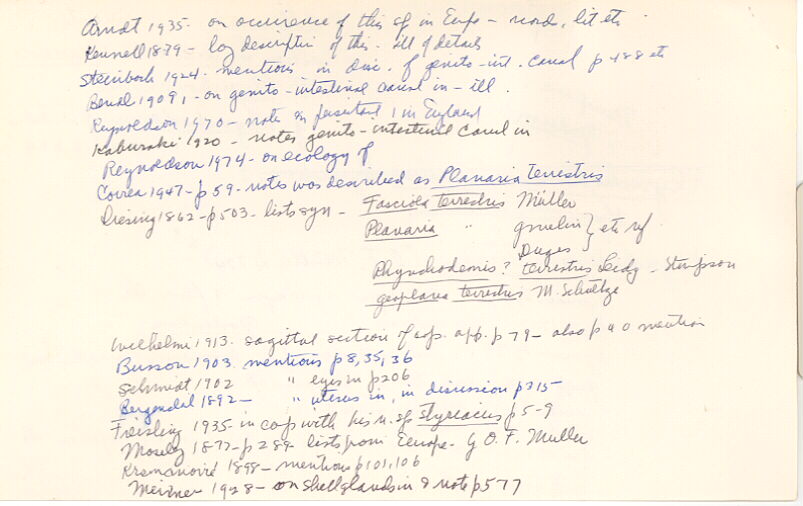 Arndt 1935 - on occurrence of this sp in Europe - records, lit etc
Kennell 1879 - log description of this - ill of details
Steinbock 1924 - mentions in disc. of genito-int. canal p 488 etc
Bendl 1909, - on genito-intestinal canal in - ill.
Reynoldson 1970 - note on in England
Kaburaki 1920 - notes genito-intestinal canal in
Reynoldson 1974 - on ecology of
Correa 1947 - p 59 - notes was described as Planaria terrestris
Diesing 1862 - p503 - lists syn - Fasciola terrestris Müller
Planaria " gmelin } etc ref
Duges }
Rhynchodemis? terrestris Leidy - Stimpson
geoplana terrestris M. Schultze
Wilhelmi 1913. sagittal section of cop. app. p 79 - also p 40 mention
Busson 1903. mentions p 8, 35, 36
Schmidt 1902 " eyes in p206
Bergendal 1892 - " uterus in, in discussion p315
Freisling 1935 - in cop with his n. sp styriacus p 5-9
Mosely 1877 - p 289 - lists from Europe - O. F. Muller
1898 - mentions p101, 106
Meixner 1928 - on shell glands in & note p577